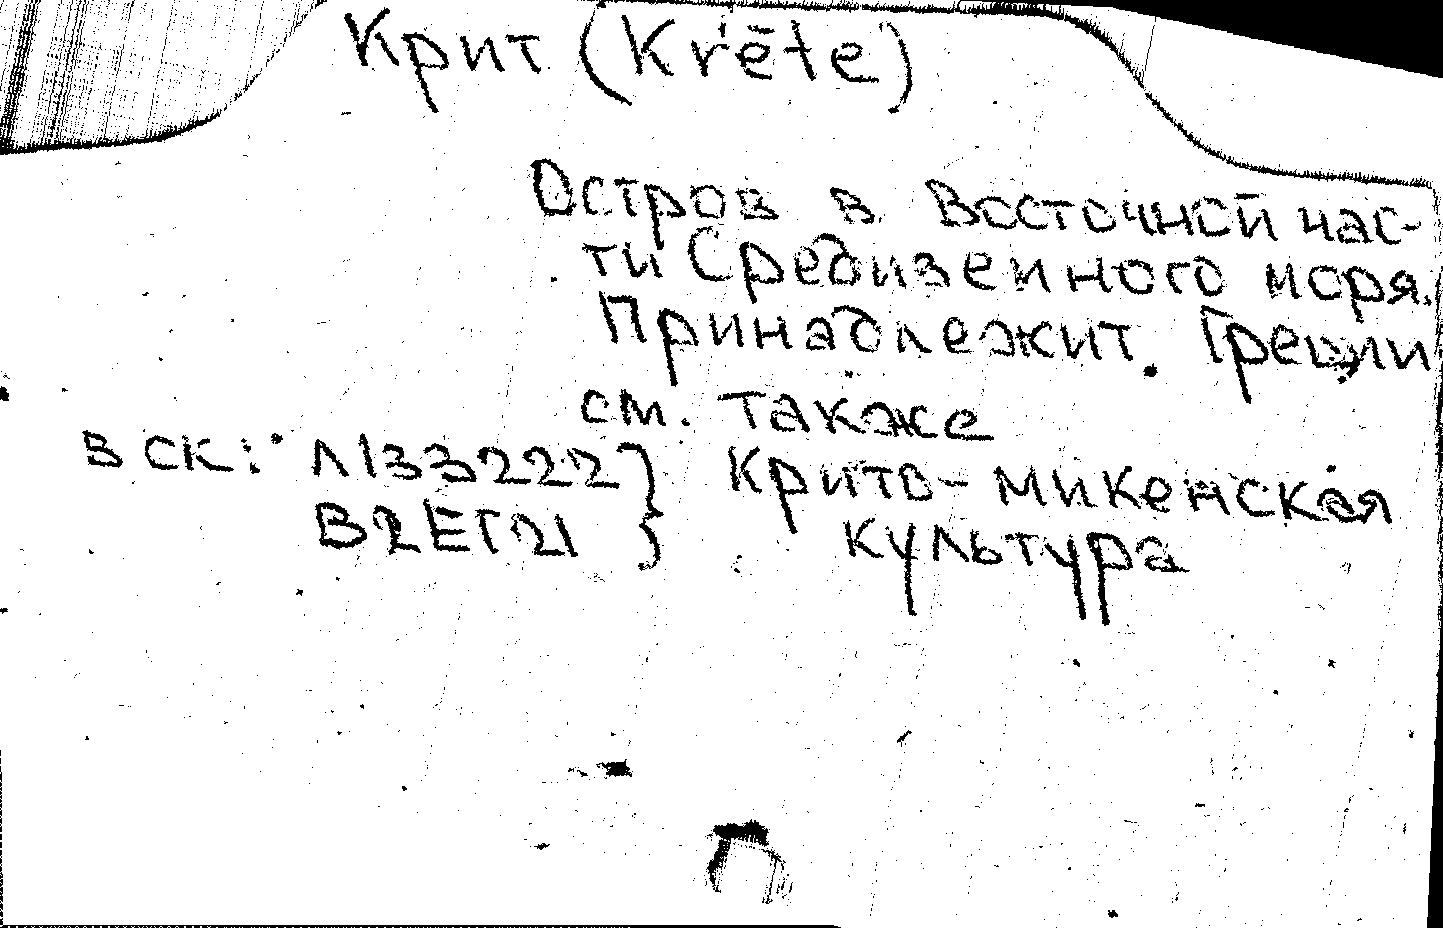 Крит (Krēte)
Остров в Восточной час-
ти Средиземного моря.
Принадлежит Греции
см. также
в СК: Л133222 } Крито-микенская
В2ЕГ21 } культура